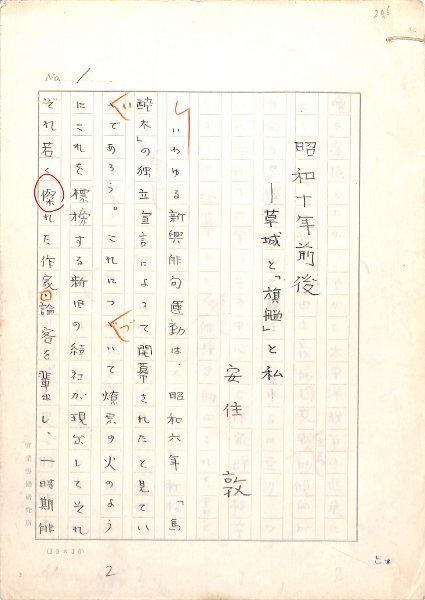 No. 1
昭和十年前後
―草城と「旗艦」と私
安住敦
いわゆる新興俳句運動は、昭和六年「馬
酔木」の独立宣言によって開幕されたと見てい
いであろう。これにつづいて燎原の火のよう
にこれを標榜する新旧の結社が現出してそれ
ぞれ若く傑れた作家・論客を輩出し、一時期俳
(20×10)
2